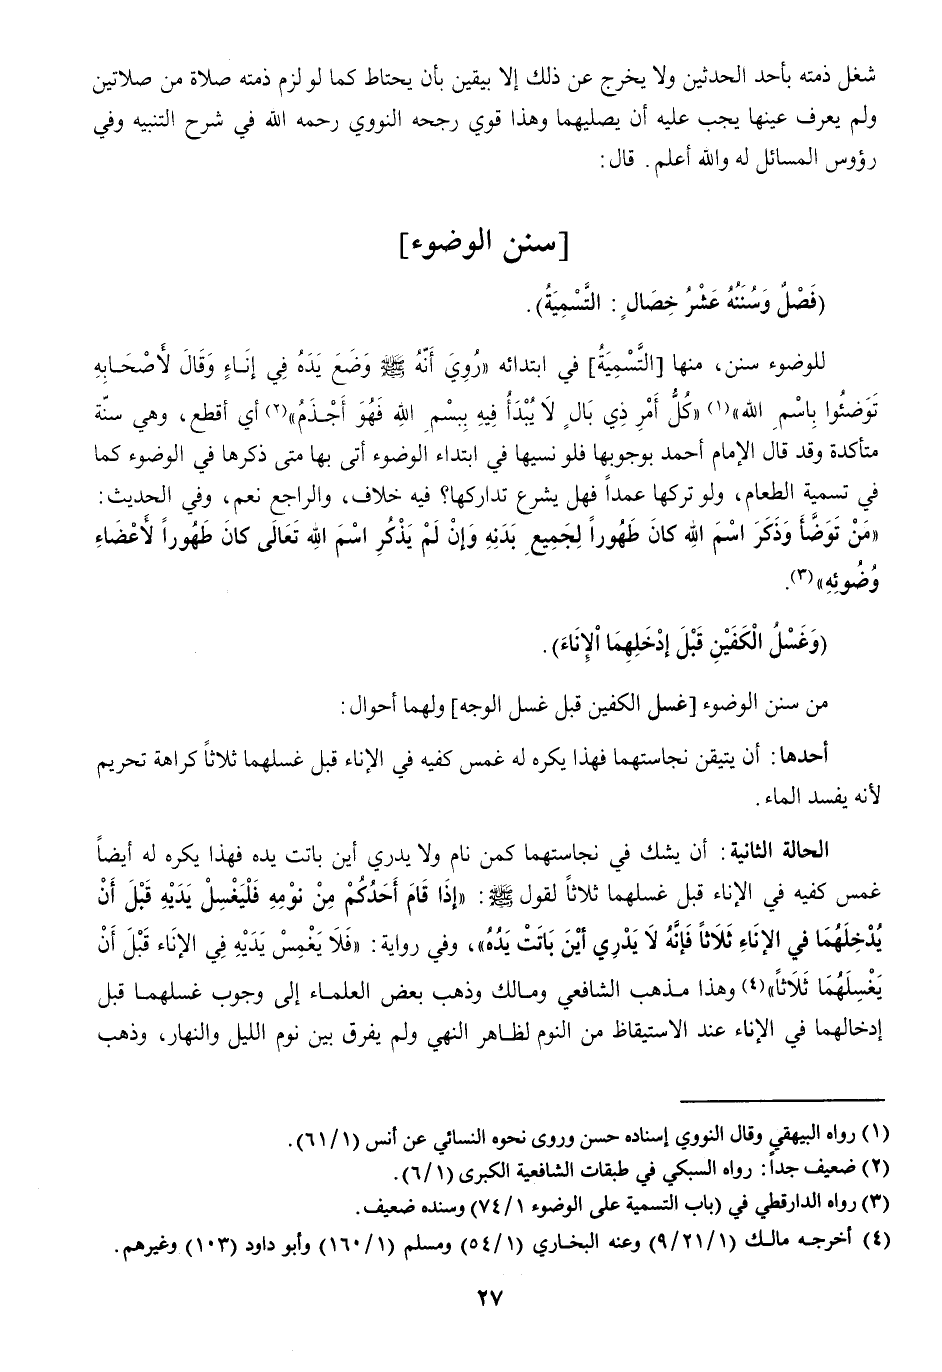 شغل ذمته بأحد الحدثين ولا يخرج عن ذلك إلا بيقين بأن يحتاط كما لو لزم ذمته صلاة من صلاتين
ولم يعرف عينها يجب عليه أن يصليهما وهذا قوي رجحه النووي رحمه الله في شرح التنبيه وفي
رؤوس المسائل له والله أعلم. قال:
[سنن الوضوء]
(فَصْلٌ وَسُنَنُهُ عَشْرُ خِصَالٍ: التَّسْمِيَةُ).
للوضوء سنن، منها [التَّسْمِيَةُ] في ابتدائه «رُوِيَ أَنَّهُ ﷺ وَضَعَ يَدَهُ فِي إِنَاءٍ وَقَالَ لأَصْحَابِهِ
تَوَضَئُوا بِاسْمِ الله»(١) «كُلُّ أَمْرٍ ذِي بَالٍ لاَ يُبْدَأُ فِيهِ بِبِسْمِ اللهِ فَهُوَ أَجْذَمُ»(٢) أي أقطع، وهي سنّة
متأكدة وقد قال الإمام أحمد بوجوبها فلو نسيها في ابتداء الوضوء أتى بها متى ذكرها في الوضوء كما
في تسمية الطعام، ولو تركها عمداً فهل يشرع تداركها؟ فيه خلاف، والراجح نعم، وفي الحديث:
«مَنْ تَوَضَّأَ وَذَكَرَ اسْمَ اللهِ كانَ طَهُوراً لِجَمِيعِ بَدَنِهِ وَإِنْ لَمْ يَذْكُرِ اسْمَ اللهِ تَعَالَى كانَ طَهُوراً لأَعْضَاءِ
وُضُوئِهِ»(٣).
(وَغَسْلُ الْكَفَيْنِ قَبْلَ إِدْخَلِهِمَا الإِنَاءَ).
من سنن الوضوء [غسل الكفين قبل غسل الوجه] ولهما أحوال:
أحدها: أن يتيقن نجاستهما فهذا يكره له غمس كفيه في الإناء قبل غسلهما ثلاثاً كراهة تحريم
لأنه يفسد الماء.
الحالة الثانية: أن يشك في نجاستهما كمن نام ولا يدري أين باتت يده فهذا يكره له أيضاً
غمس كفيه في الإناء قبل غسلهما ثلاثاً لقول ﷺ: «إِذَا قَامَ أَحَدُكُمْ مِنْ نَوْمِهِ فَلْيَغْسِلْ يَدَيْهِ قَبْلَ أَنْ
يُدْخِلَهُمَا في الإِنَاءِ ثَلاَثاً فَإِنَّهُ لاَ يَدْرِي أَيْنَ بَاتَتْ يَدُهُ»، وفي رواية: «فَلاَ يَغْمِسْ يَدَيْهِ فِي الإِنَاءِ قَبْلَ أَنْ
يَغْسِلَهُمَا ثَلاَثاً»(٤) وهذا مذهب الشافعي ومالك وذهب بعض العلماء إلى وجوب غسلهما قبل
إدخالهما في الإناء عند الاستيقاظ من النوم لظاهر النهي ولم يفرق بين نوم الليل والنهار، وذهب
(١) رواه البيهقي وقال النووي إسناده حسن وروى نحوه النسائي عن أنس (٦١/١).
(٢) ضعيف جداً: رواه السبكي في طبقات الشافعية الكبرى (٦/١).
(٣) رواه الدارقطي في (باب التسمية على الوضوء ٧٤/١) وسنده ضعيف.
(٤) أخرجه مالك (٩/٢١/١) وعنه البخاري (٥٤/١) ومسلم (١٦٠/١) وأبو داود (١٠٣) وغيرهم.
٢٧